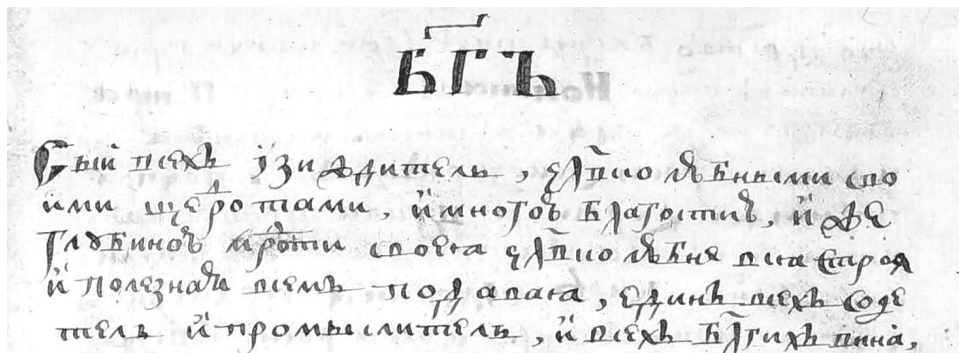 БГЪ
Сый всехъ зиждитель, члвколюбными сво
ими щедротами, и многою благостию, и же
глубиною млрдти своея члвколюбне вся строя
и полезная всемъ подавая, единъ всехъ соде
тель и промыслитель, и всехъ блгихъ вина,